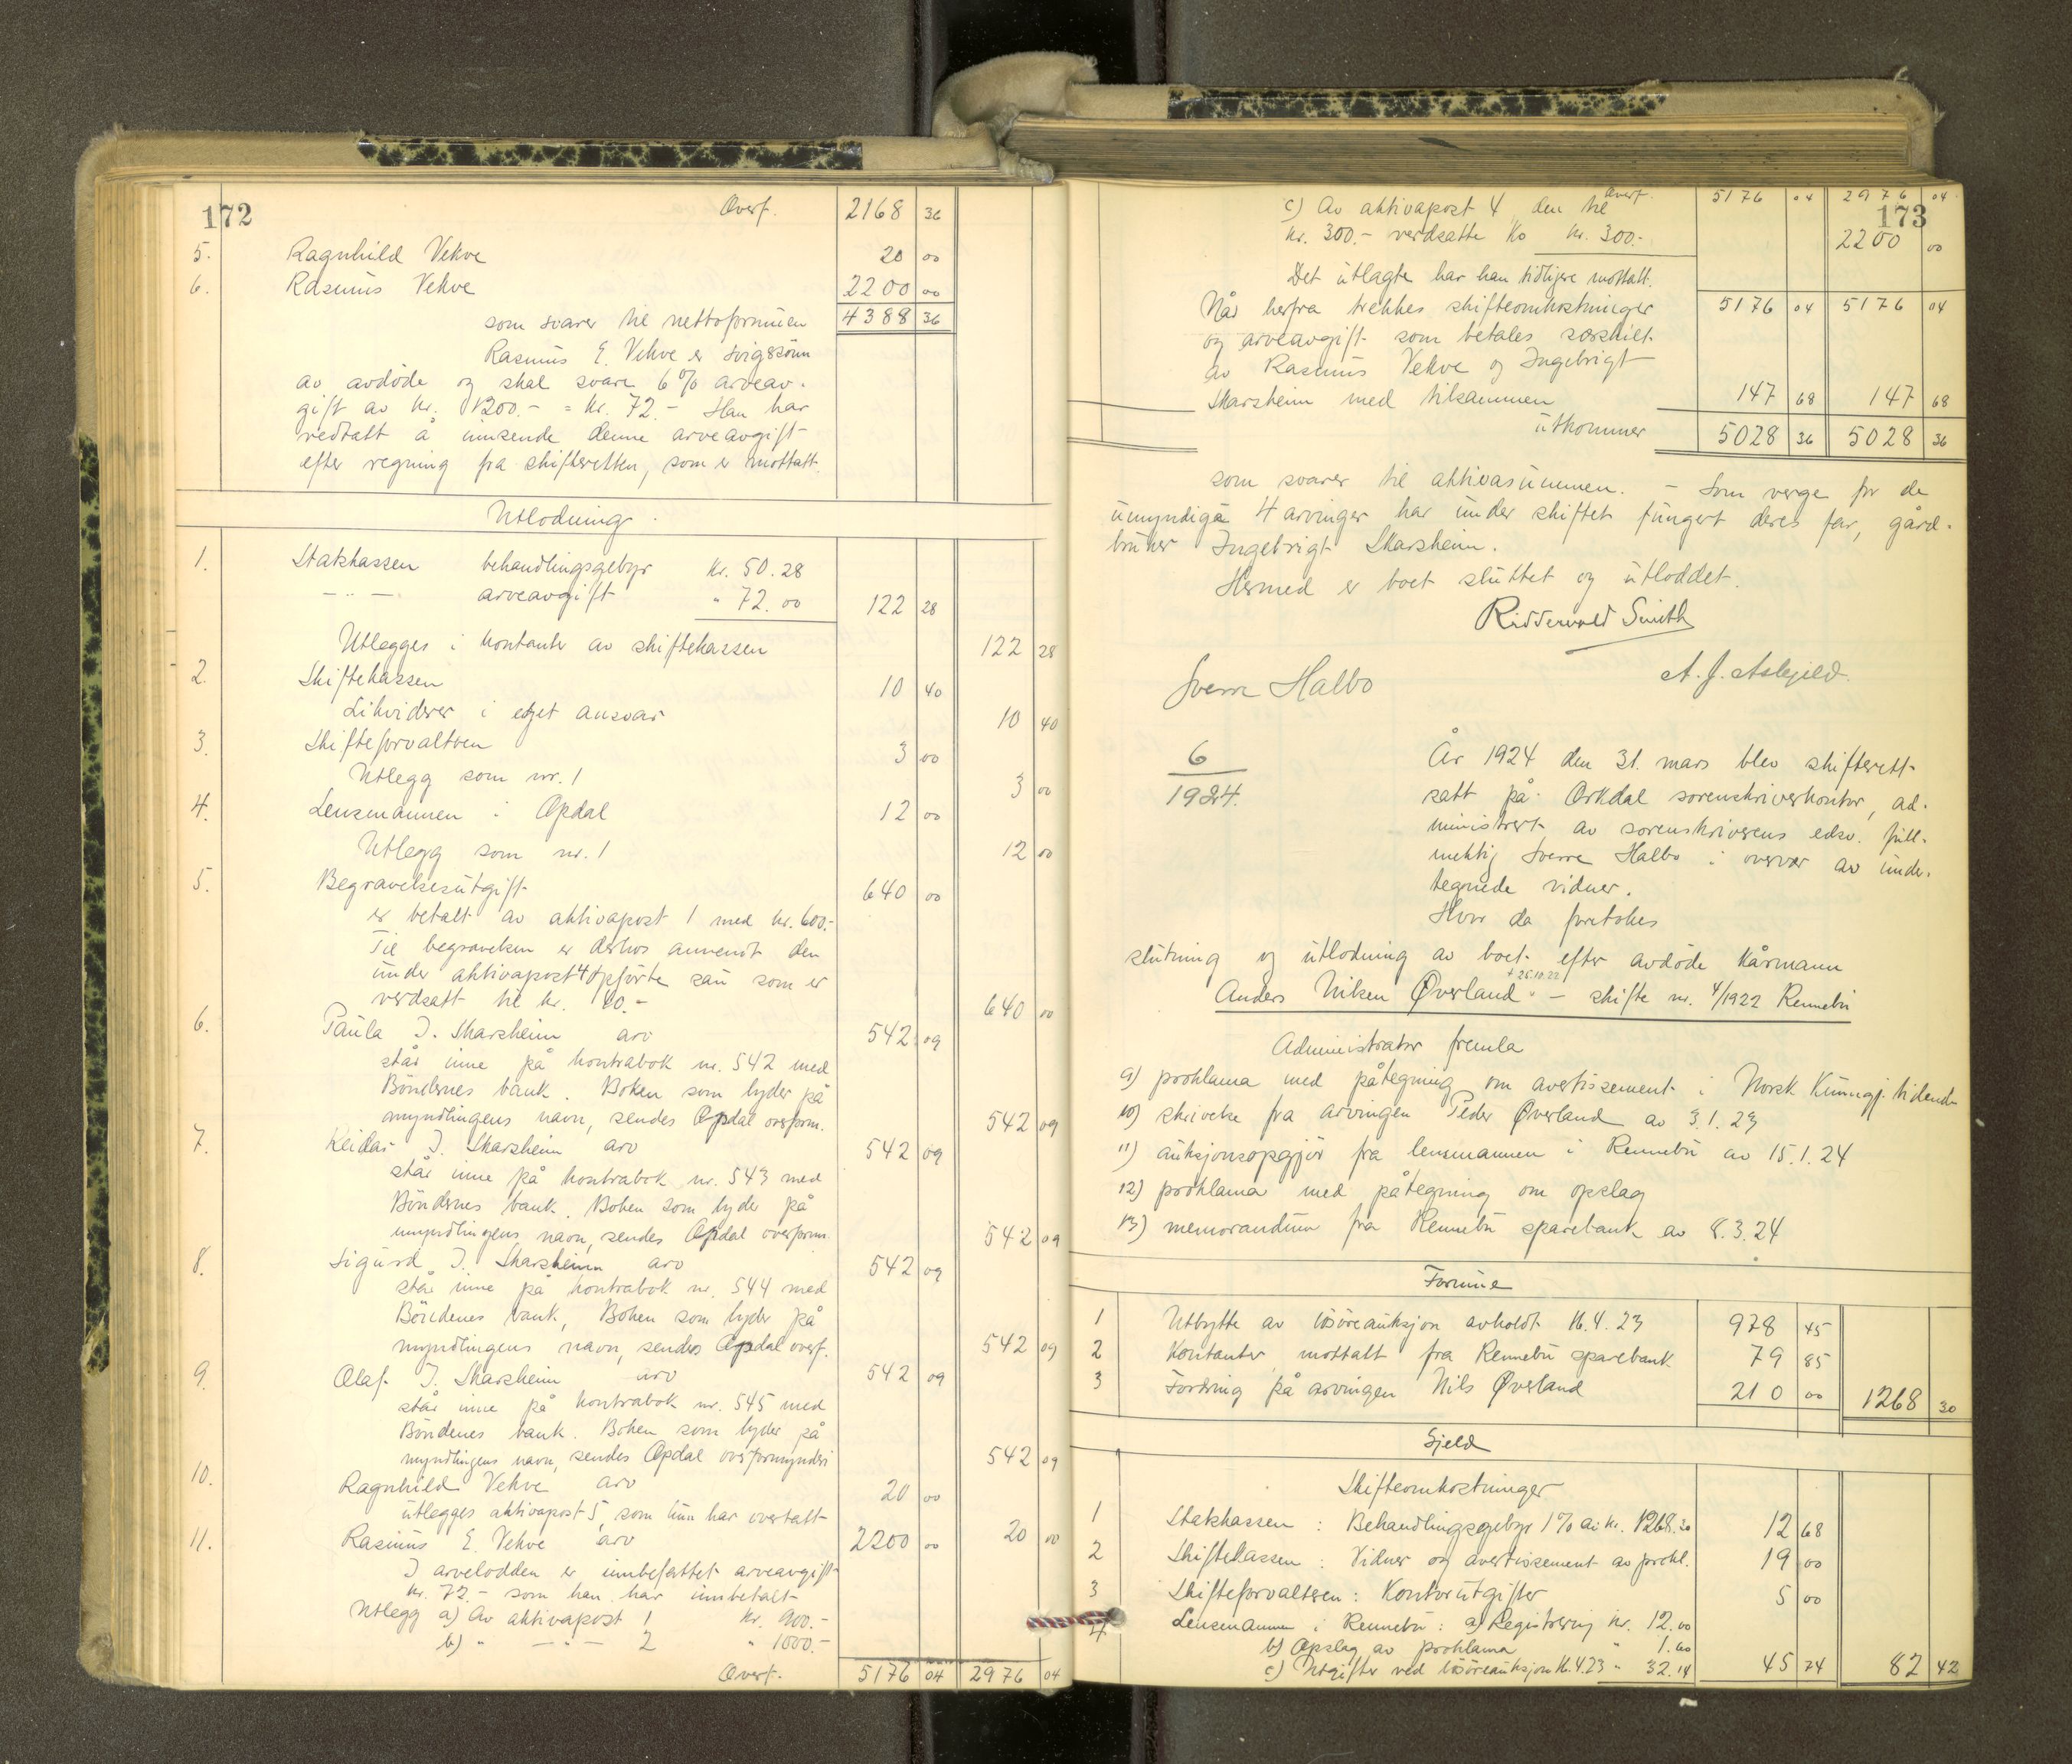 172
Overf. 2168 36
5. Ragnhild Vekve 20 00
6. Rasmus Vekve 2200 00
som svarer til nettoformuen 4388 36
Rasmus E. Vekve er svigersønn
av avdøde og skal svare 6% arveav-
gift av kr. 1200.- = kr. 72.- Han har
vedtatt å innsende denne arveavgift
efter regning fra skifteretten, som er mottatt.
Utlodning.
1. Statskassen behandlingsgebyr kr. 50.28
- " - arveavgift " 72.00 122 28
Utlegges i kontanter av skiftekassen 122 28
2. Skiftekassen 10 40
Likviderer i eget ansvar 10 40
3. Skifteforvalteren 3 00
Utlegg som nr. 1 3 00
4. Lensmannen i Opdal 12 00
Utlegg som nr. 1 12 00
5. Begravelsesutgift 640 00
er betalt av aktivapost 1 med kr. 600.-
Til begravelsen er derhos anvendt den
under aktivapost 4 opførte sau som er
verdsatt til kr. 40.- 640 00
6. Paula I. Skarsheim arv 542 09
står inne på kontrabok nr. 542 med
Bøndernes bank. Boken som lyder på
myndlingens navn, sendes Opdal overform. 542 09
7. Reidar I. Skarsheim arv 542 09
står inne på kontrabok nr. 543 med
Bøndernes bank. Boken som lyder på
myndlingens navn, sendes Opdal overform. 542 09
8. Sigurd I. Skarsheim arv 542 09
står inne på kontrabok nr. 544 med
Bøndenes bank, Boken som lyder på
myndlingens navn, sendes Opdal overf. 542 09
9. Olaf I. Skarsheim arv 542 09
står inne på kontrabok nr. 545 med
Bøndenes bank. Boken som lyder på
myndlingens navn, sendes Opdal overformynderi 542 09
10. Ragnhild Vekve arv 20 00
utlegges aktivapost 5 som hun har overtatt 20 00
11. Rasmus E. Vekve arv 2200 00
I arvelodden er innbefattet arveavgift
kr. 72.- som han har innbetalt
Utlegg a) Av aktivapost 1 kr. 900.-
b) " - " - 2 " 1000.-
Overf. 5176 04 2976 04
173
Overf. 5176 04 2976 04
c) Av aktivapost 4 den til
kr. 300.- verdsatte ko kr. 300.- 2200 00
Det utlagte har han tidligere mottatt.
5176 04 5176 04
Når herfra trekkes skifteomkostninger
og arveavgift som betales særskilt
av Rasmus Vekve og Ingebrigt
Skarsheim med tilsammen 147 68 147 68
utkommer 5028 36 5028 36
som svarer til aktivasummen. - Som verge for de
umyndige 4 arvinger har under skiftet fungert deres far, gård-
bruker Ingebrigt Skarsheim.
Hermed er boet sluttet og utloddet.
Ridderwold Smith
Sverre Halbo A. J. Askjeld.
6
1924.
År 1924 den 31. mars blev skifterett
satt på Orkdal sorenskriverkontor, ad-
ministrert av sorenskriverens edsv. full-
mektig Sverre Halbo i overvær av under-
tegnede vidner.
Hvor da foretokes
slutning og utlodning av boet efter avdøde kårmann
+ 26.10.22
Anders Nilsen Øverland - skifte nr. 4/1922 Rennebu
Administrator fremla
9) proklama med påtegning om avertissement i Norsk Kunngj. tidende
10) skrivelse fra arvingen Peder Øverland av 3.1.23
11) auksjonsopgjør fra lensmannen i Rennebu av 15.1.24
12) proklama med påtegning om opslag
13) memorandum fra Rennebu sparebank av 8.3.24
Formue
1 Utbytte av løsøreauksjon avholdt 16.4.23 978 45
2 Kontanter mottatt fra Rennebu sparebank 79 85
3 Fordring på arvingen Nils Øverland 210 00 1268 30
Gjeld
Skifteomkostninger
1 Statskassen: Behandlingsgebyr 1% av kr. 1268.30 12 68
2 Skiftekassen: Vidner og avertissement av prokl. 19 00
3 Skifteforvalteren: Kontorutgifter 5 00
4 Lensmannen i Rennebu: a) Registrering kr. 12.00
b) Opslag av proklama " 1.60
c) Utgifter ved løsøreauksjon 16.4.23 " 32.14 45 74 82 42